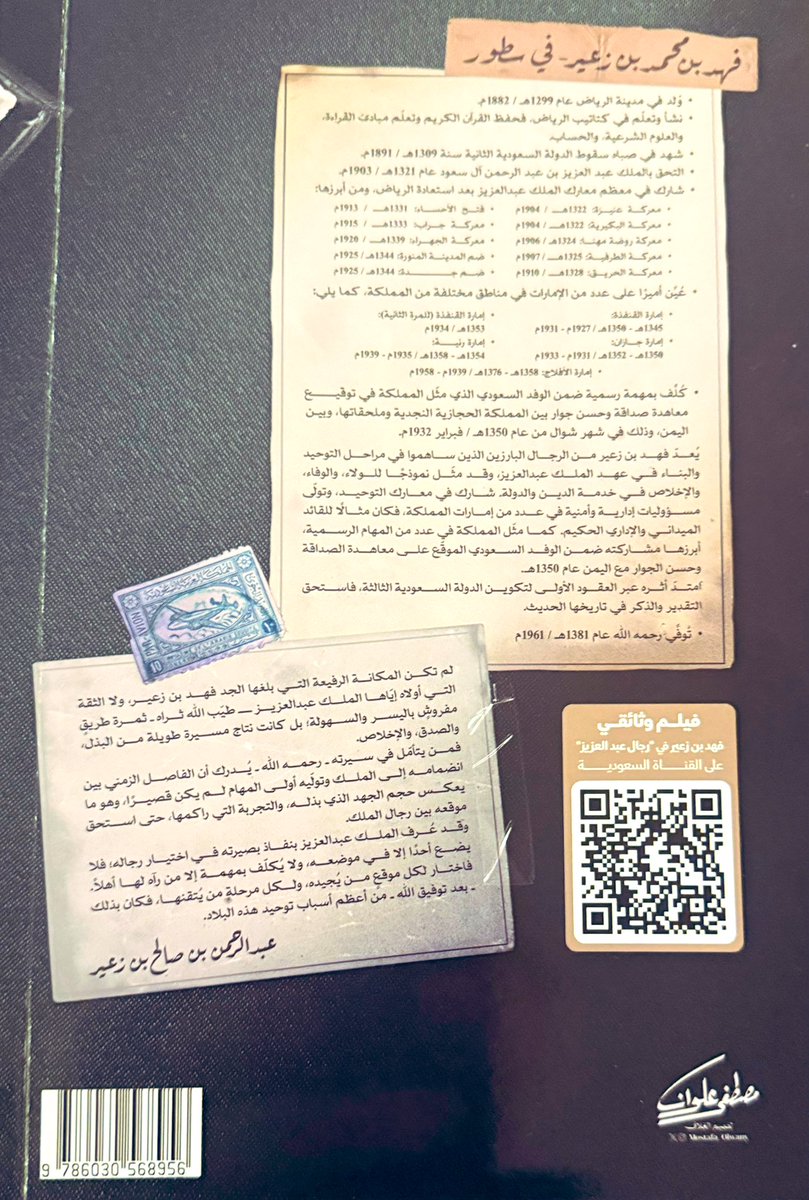 فهد بن محمد بن زعير - في سطور
• وُلد في مدينة الرياض عام 1299هـ / 1882م.
• نشأ وتعلّم في كتاتيب الرياض، فحفظ القرآن الكريم وتعلّم مبادئ القراءة،
والعلوم الشرعية، والحساب.
• شهد في صباه سقوط الدولة السعودية الثانية سنة 1309هـ / 1891م.
• التحق بالملك عبد العزيز بن عبد الرحمن آل سعود عام 1321هـ / 1903م.
• شارك في معظم معارك الملك عبدالعزيز بعد استعادة الرياض، ومن أبرزها:
• معركة عنيزة: 1322هـ / 1904م
• معركة البكيرية: 1322هـ / 1904م
• معركة روضة مهنا: 1324هـ / 1906م
• معركة الطرفية: 1325هـ / 1907م
• معركة الحريق: 1328هـ / 1910م
• فتح الأحساء: 1331هـ / 1913م
• معركة جراب: 1333هـ / 1915م
• معركة الجهراء: 1339هـ / 1920م
• ضم المدينة المنورة: 1344هـ / 1925م
• ضم جــــدة: 1344هـ / 1925م
• عُيّن أميرًا على عدد من الإمارات في مناطق مختلفة من المملكة، كما يلي:
• إمارة القنفذة:
1345هـ - 1350هـ / 1927م - 1931م
• إمارة جازان:
1350هـ - 1352هـ / 1931م - 1933م
• إمارة القنفذة (للمرة الثانية):
1353هـ / 1934م
• إمارة رنية:
1354هـ - 1358هـ / 1935م - 1939م
• إمارة الأفلاج: 1358هـ - 1376هـ / 1939م - 1958م
• كُلّف بمهمة رسمية ضمن الوفد السعودي الذي مثّل المملكة في توقيع
معاهدة صداقة وحسن جوار بين المملكة الحجازية النجدية وملحقاتها، وبين
اليمن، وذلك في شهر شوال من عام 1350هـ / فبراير 1932م.
يُعدّ فهد بن زعير من الرجال البارزين الذين ساهموا في مراحل التوحيد
والبناء في عهد الملك عبدالعزيز، وقد مثّل نموذجًا للولاء، والوفاء،
والإخلاص في خدمة الدين والدولة. شارك في معارك التوحيد، وتولّى
مسؤوليات إدارية وأمنية في عدد من إمارات المملكة، فكان مثالًا للقائد
الميداني والإداري الحكيم. كما مثّل المملكة في عدد من المهام الرسمية،
أبرزها مشاركته ضمن الوفد السعودي الموقّع على معاهدة الصداقة
وحسن الجوار مع اليمن عام 1350هـ.
امتدّ أثره عبر العقود الأولى لتكوين الدولة السعودية الثالثة، فاستحق
التقدير والذكر في تاريخها الحديث.
• تُوفّي رحمه الله عام 1381هـ / 1961م
10
لم تكن المكانة الرفيعة التي بلغها الجد فهد بن زعير، ولا الثقة
التي أولاه إيّاها الملك عبدالعزيز — طيّب الله ثراه - ثمرة طريقٍ
مفروشٍ باليسر والسهولة؛ بل كانت نتاج مسيرة طويلة من البذل،
والصدق، والإخلاص.
فمن يتأمّل في سيرته - رحمه الله - يُدرك أن الفاصل الزمني بين
انضمامه إلى الملك وتولّيه أولى المهام لم يكن قصيرًا، وهو ما
يعكس حجم الجهد الذي بذله، والتجربة التي راكمها، حتى استحق
موقعه بين رجال الملك.
وقد عُرف الملك عبدالعزيز بنفاذ بصيرته في اختيار رجاله؛ فلا
يضع أحدًا إلا في موضعه، ولا يُكلّف بمهمة إلا من رآه لها أهلاً.
فاختار لكل موقعٍ من يُجيده، ولكل مرحلةٍ من يُتقنها، فكان بذلك
- بعد توفيق الله - من أعظم أسباب توحيد هذه البلاد.
عبد الرحمن بن صالح بن زعير
فيلم وثائقي
فهد بن زعير في "رجال عبد العزيز"
على القناة السعودية
مصطفى علوان
تصميم الغلاف
Mostafa Olwany
9 786030 568956